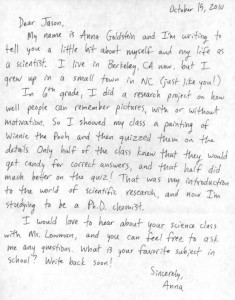 October 19, 2010
Dear Jason,
My name is Anna Goldstein and I'm writing to
tell you a little bit about myself and my life as
a scientist. I live in Berkeley, CA now, but I
grew up in a small town in NC (just like you!)
In 6th grade, I did a research project on how
well people can remember pictures, with or without
motivation. So I showed my class a painting of
Winnie the Pooh and then quizzed them on the
details. Only half of the class knew that they would
get candy for correct answers, and that half did
much better on the quiz! That was my introduction
to the world of scientific research, and now I'm
studying to be a Ph.D. chemist.
I would love to hear about your science class
with Mr. Lowman, and you can feel free to ask
me any questions. What is your favorite subject in
school? Write back soon!
Sincerely,
Anna